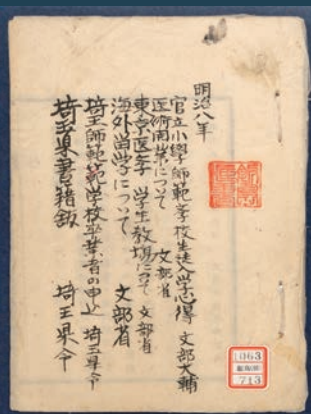 明治八年
官立小學師範学校生徒入学心得 文部大輔
医術開業について 文部省
東京医学 学生教場について 文部省
海外留学について 文部省
埼玉師範学校卒業者の申込 埼玉県令
埼玉県書籍館 埼玉県令
1063
713